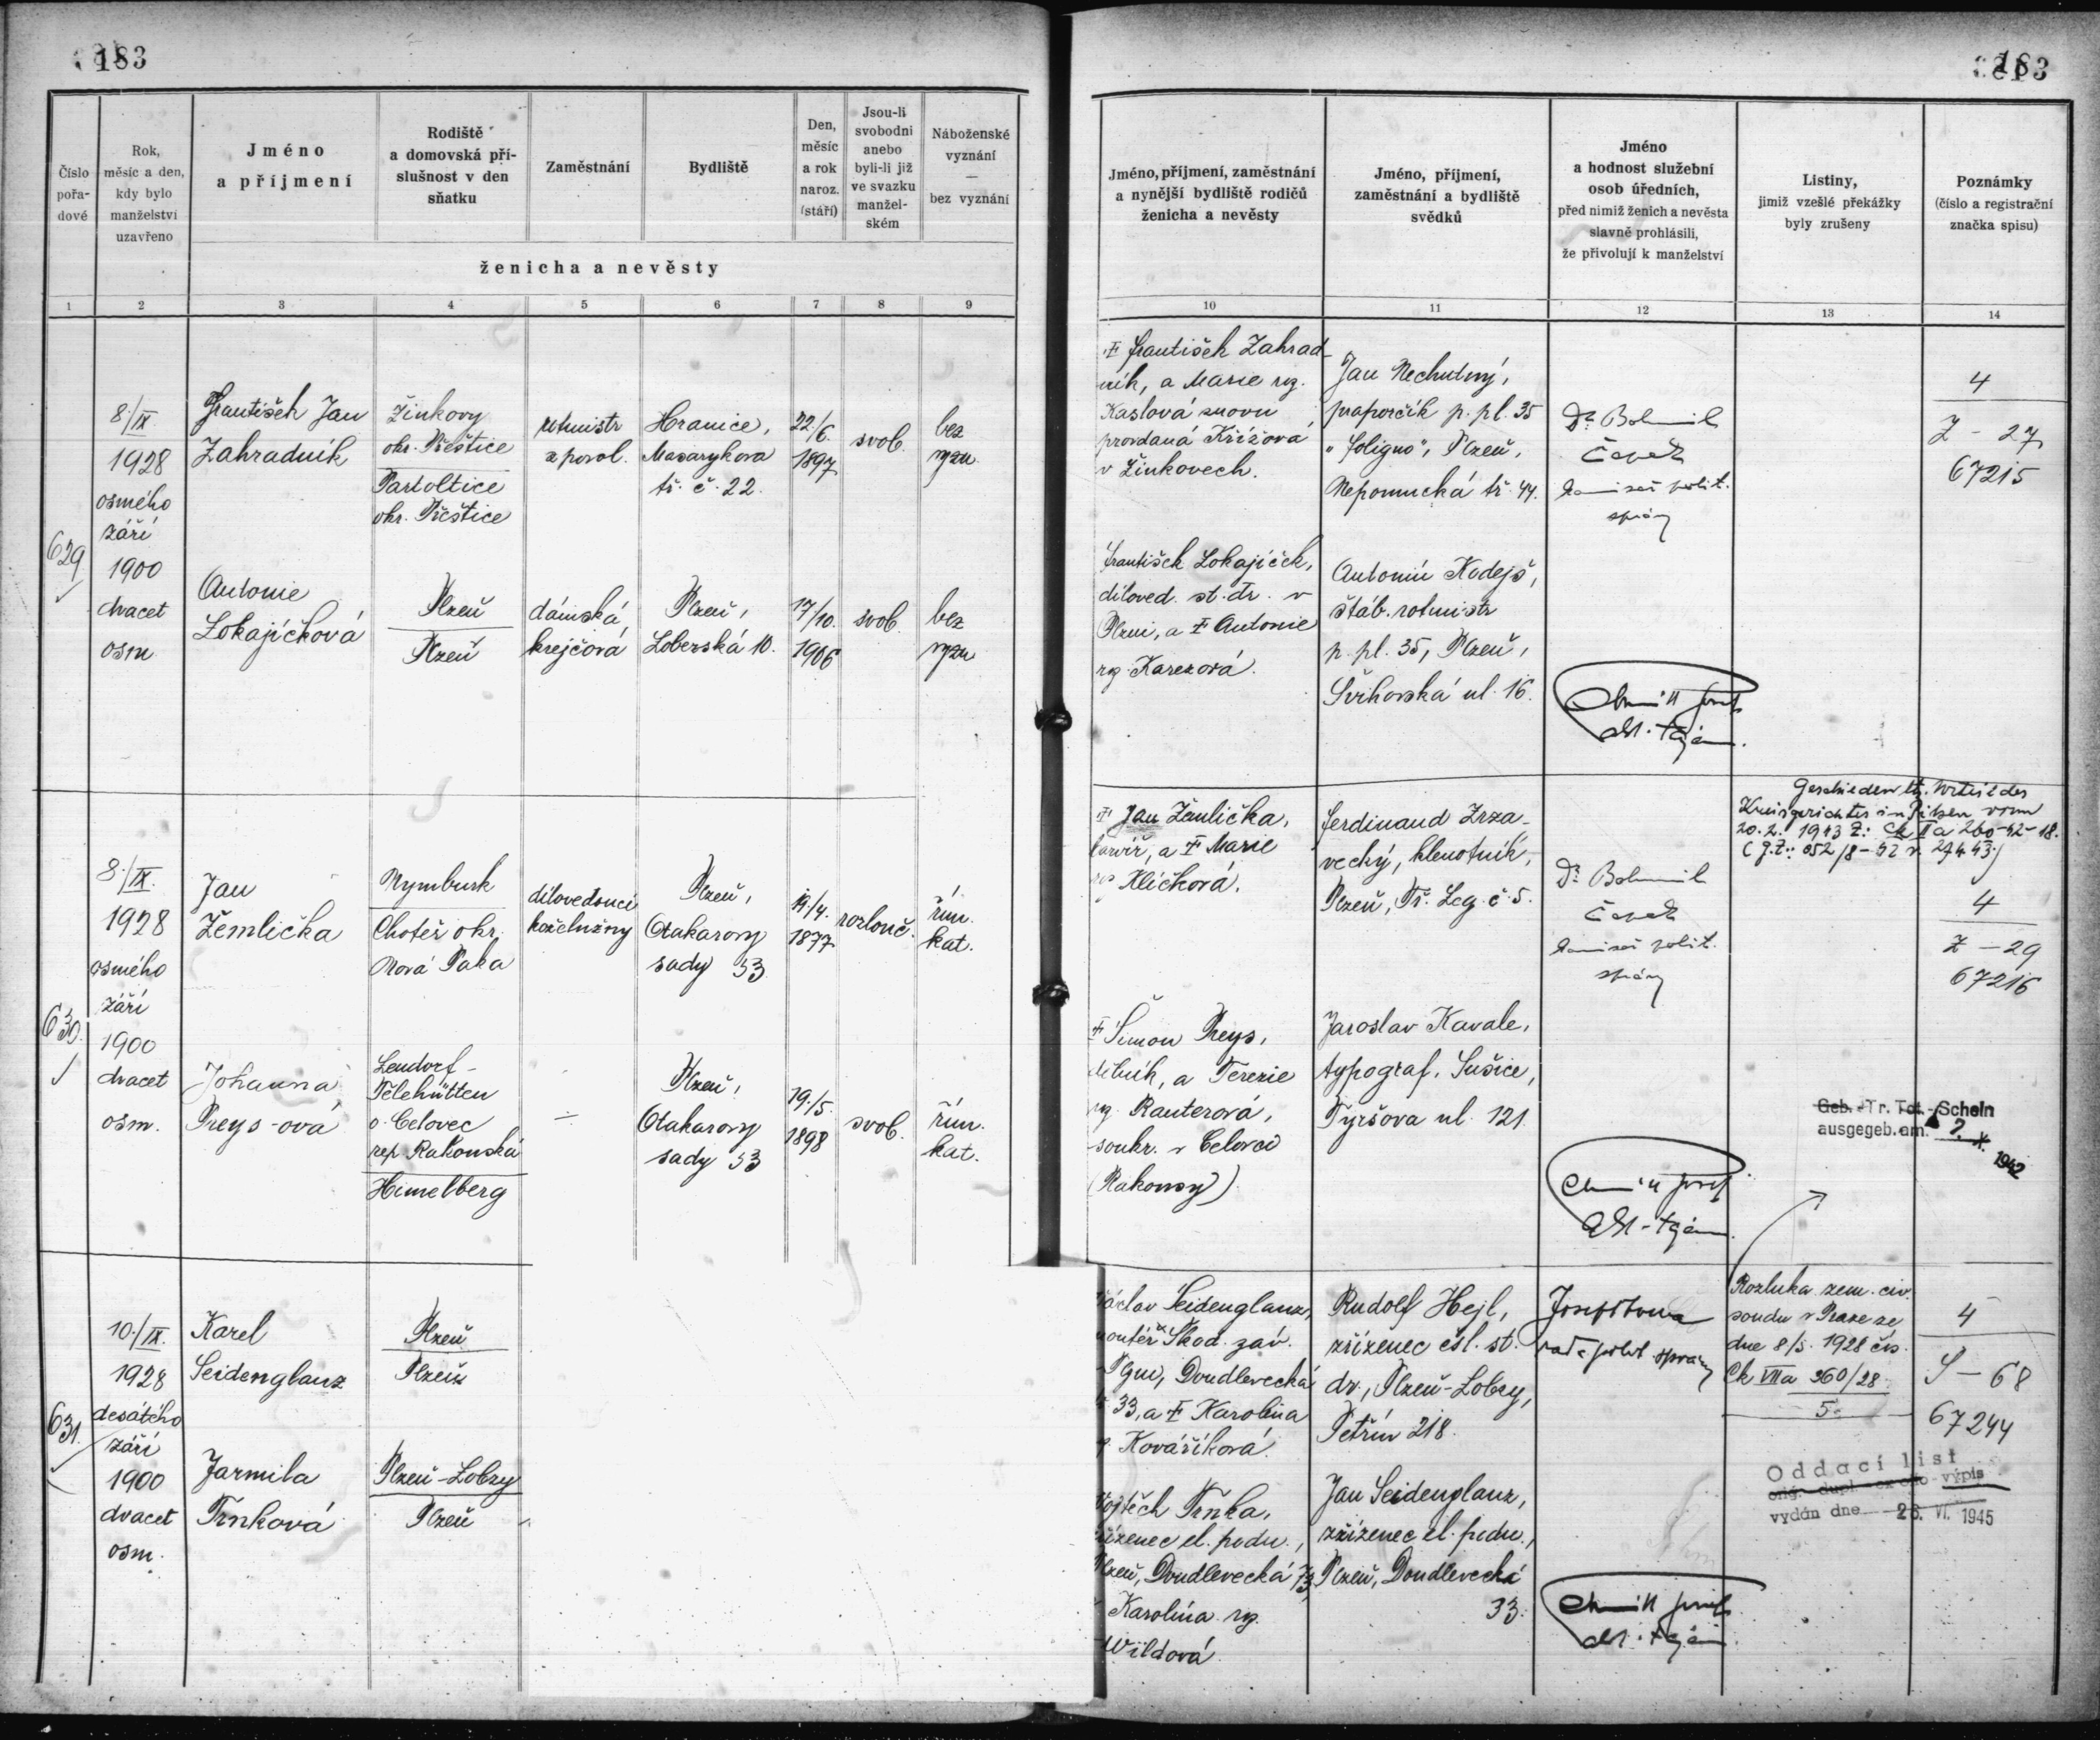 183
183
Číslo pořa- dové
Rok, měsíc a den, kdy bylo manželství uzavřeno
Jméno a příjmení
Rodiště a domovská pří- slušnost v den sňatku
Zaměstnání
Bydliště
Den, měsíc a rok naroz. (stáří)
Jsou-li svobodni anebo byli-li již ve svazku manžel- ském
Náboženské vyznání — bez vyznání
ženicha a nevěsty
Jméno, příjmení, zaměstnání a nynější bydliště rodičů ženicha a nevěsty
Jméno, příjmení, zaměstnání a bydliště svědků
Jméno a hodnost služební osob úředních, před nimiž ženich a nevěsta slavně prohlásili, že přivolují k manželství
Listiny, jimiž vzešlé překážky byly zrušeny
Poznámky (číslo a registrační značka spisu)
1 2 3 4 5 6 7 8 9 10 11 12 13 14
629
8./IX.
1928
osmého
září
1900
dvacet
osm
František Jan
Zahradník
Žinkovy
okr. Přeštice
Partoltice
okr. Přeštice
rotmistr
z povol.
Hranice,
Masarykova
tř. č. 22.
22./6.
1897
svob.
bez
vyzn.
Antonie
Lokajíčková
Plzeň
Plzeň
dámská
krejčová
Plzeň,
Loberská 10.
17/10.
1906
svob.
bez
vyzn.
František Zahrad-
ník, a Marie roz.
Kaslová znovu
provdaná Křížová
v Žinkovech.
František Lokajíček,
díloved. st. dr. v
Plzni, a Antonie
roz. Karezová.
Jan Nechutný,
praporčík p. pl. 35
"Foligno", Plzeň,
Nepomucká tř. 44.
Antonín Kodejš,
štáb. rotmistr
p. pl. 35, Plzeň,
Švihovská ul. 16.
Dr. Bohumil
Čapek
komisař polit.
správy
4
Z - 27
67215
630.
8./IX.
1928
osmého
září
1900
dvacet
osm.
Jan
Žemlička
Nymburk
Choteč okr.
Nová Paka
dílovedoucí
koželužny
Plzeň,
Otakarovy
sady 53
19./4.
1877
rozlouč.
řím.
kat.
Johanna
Preys-ová
Lendorf-
Telehütten
o. Celovec
rep. Rakouská
Himelberg
Plzeň,
Otakarovy
sady 53
19./5.
1898
svob.
řím.
kat.
Jan Žemlička,
barvíř, a Marie
roz. Klichová.
Šimon Preys,
dělník, a Terezie
roz. Rauterová,
soukr. v Celovci
(Rakousy)
Ferdinand Zrza-
vecký, klenotník,
Plzeň, Tř. Leg. č. 5.
Jaroslav Kavale,
typograf. Sušice,
Tyršova ul. 121.
Dr. Bohumil
Čapek
komisař polit.
správy
Geschieden lt. Urteil des
Kreisgerichtes in Pilsen vom
20. 2. 1943 Z: Ck II a 260-42-18.
4
Z - 29
67216
Geb.-Tr. Tot.-Schein
ausgegeb. am 7. X. 1942
631.
10./IX.
1928
desátého
září
1900
dvacet
osm.
Karel
Seidenglanz
Plzeň
Plzeň
Jarmila
Trnková
Plzeň-Lobzy
Plzeň
Václav Seidenglanz,
montér Škod. záv.
Plzni, Doudlevecká
33, a Karolina
Kováříková.
Vojtěch Trnka,
zřízenec el. podn.,
Plzeň, Doudlevecká 73,
Karolina roz.
Wildová.
Rudolf Hejl,
zřízenec čsl. st.
dr., Plzeň-Lobzy,
Petřín 218.
Jan Seidenglanz,
zřízenec el. podn.,
Plzeň, Doudlevecká
33.
rada polit. správy
Rozluka zem. civ.
soudu v Praze ze
dne 8/5. 1928 čís.
Ck VII a 360/28
5
4
S - 68
67244
Oddací list
výpis
vydán dne 26. VI. 1945